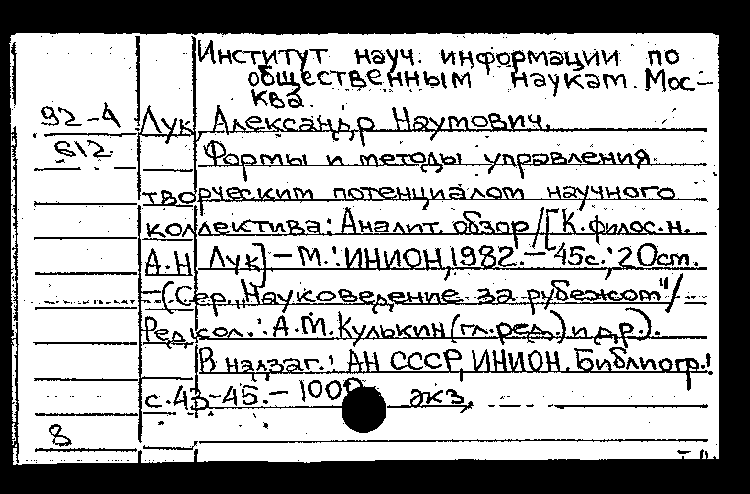 Институт науч. информации по
общественным наукам. Мос-
ква.
92-4 Лук, Александр Наумович.
612 Формы и методы управления
творческим потенциалом научного
коллектива: Аналит. обзор /[К.филос.н.
А.Н. Лук] - М.: ИНИОН, 1982. - 45с.; 20см.
- (Сер. "Науковедение за рубежом"/
Редкол.: А.М. Кулькин (гл.ред.) и др.).
В надзаг.: АН СССР, ИНИОН. Библиогр.:
с.43-45. - 1000 экз.
8